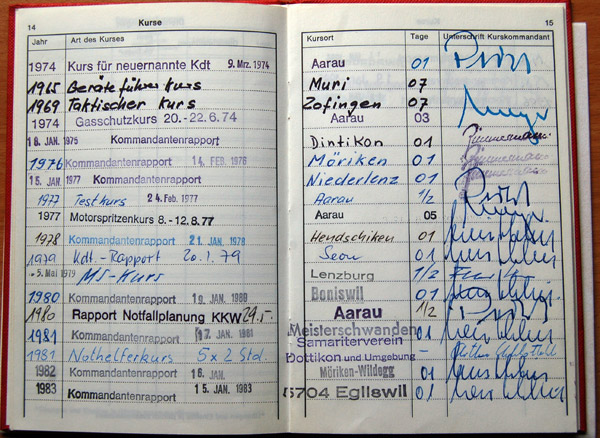 14 Kurse
Jahr Art des Kurses
1974 Kurs für neuernannte Kdt 9. Mrz. 1974
1965 Geräteführerkurs
1969 Taktischer Kurs
1974 Gasschutzkurs 20.-22.6.74
18. JAN. 1975 Kommandantenrapport
1976 Kommandantenrapport 14. FEB. 1976
15. JAN. 1977 Kommandantenrapport
1977 Testkurs 24. Feb. 1977
1977 Motorspritzenkurs 8.-12.8.77
1978 Kommandantenrapport 21. JAN. 1978
1979 Kdt.-Rapport 20.1.79
-5. Mai 1979 MS-Kurs
1980 Kommandantenrapport 19. JAN. 1980
1980 Rapport Notfallplanung KKW 29.5.
1981 Kommandantenrapport 17. JAN. 1981
1981 Nothelferkurs 5 x 2 Std.
1982 Kommandantenrapport 16. JAN.
1983 Kommandantenrapport 15. JAN. 1983
15
Kursort Tage Unterschrift Kurskommandant
Aarau 01
Muri 07
Zofingen 07
Aarau 03
Dintikon 01 Zimmermann
Möriken 01 Zimmermann
Niederlenz 01 Zimmermann
Aarau 1/2
Aarau 05
Hendschiken 01
Seon 01
Lenzburg 1/2
Boniswil 01
Aarau 1/2
Meisterschwanden 01
Samariterverein
Dottikon und Umgebung -
Möriken-Wildegg 01
5704 Egliswil 01